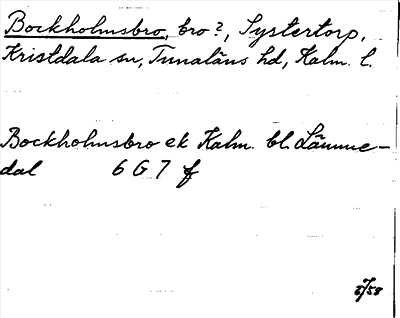 Bockholmsbro, bro?, Systertorp,
Kristdala sn, Tunaläns hd, Kalm. l.
Bockholmsbro ek Kalm. bl. Lämme-
dal 6 G 7 f
/58